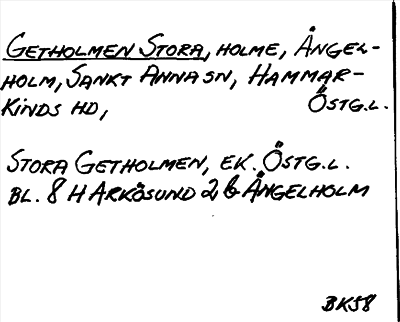 GETHOLMEN STORA, HOLME, ÄNGEL-
HOLM, SANKT ANNA SN, HAMMAR-
KINDS HD, ÖSTG.L.
STORA GETHOLMEN, EK. ÖSTG.L.
BL. 8 H ARKÖSUND 2 b ÄNGELHOLM
BK58